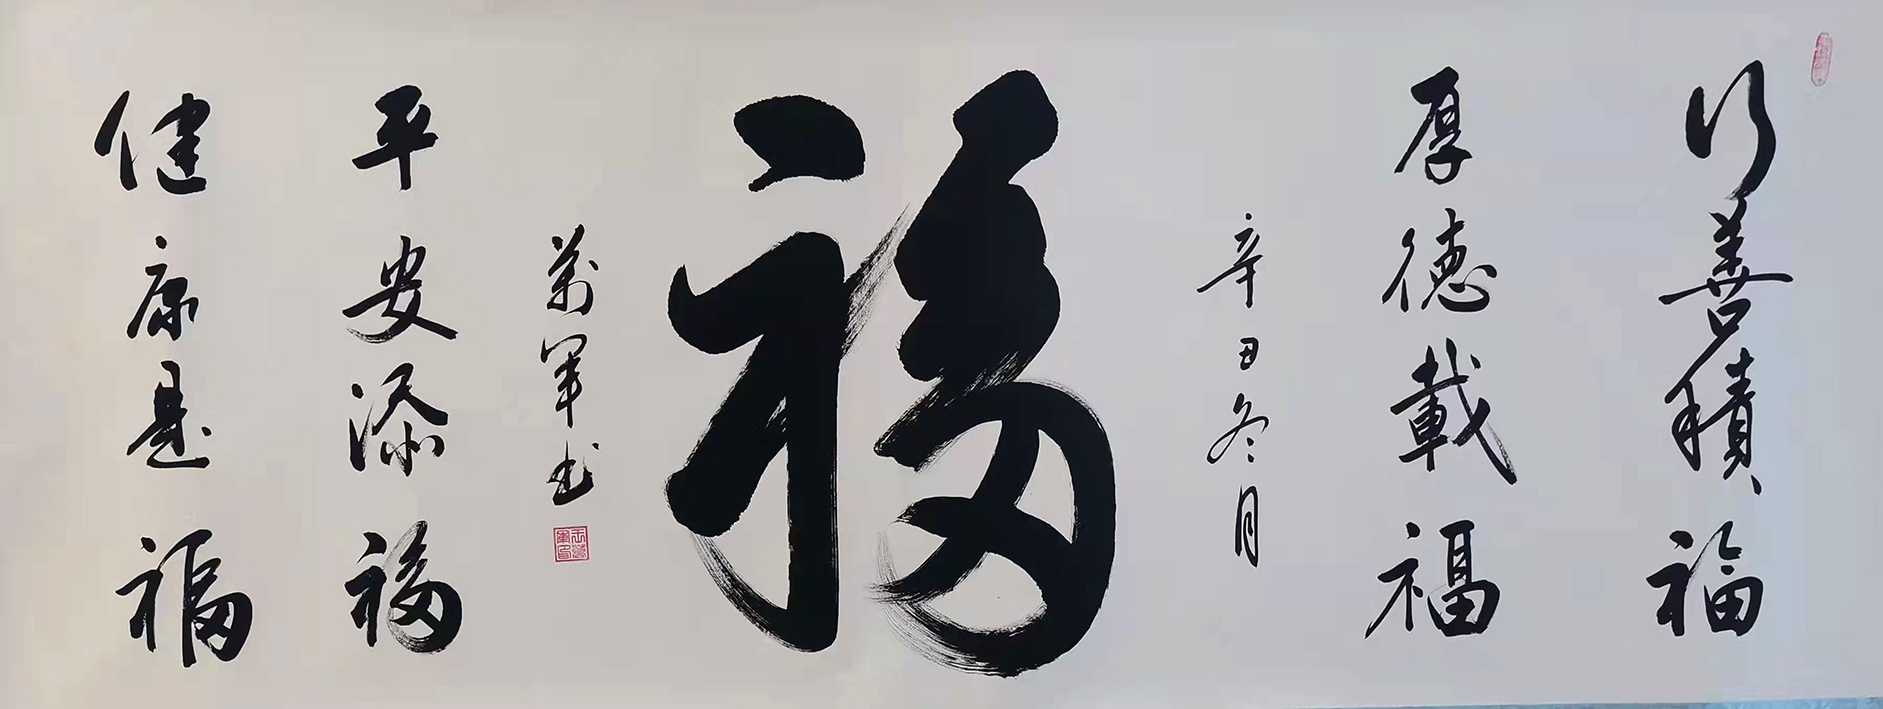 行善積福
厚德載福
辛丑冬月
福
萬軍书
平安添福
健康是福